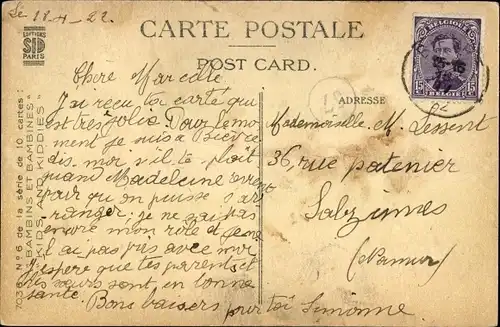 Le 18-4-22.
CARTE POSTALE
POST CARD.
EDITIONS
SID
PARIS
BELGIQUE
15 15
BELGIË
37
ADRESSE
Chère Marcelle
J'ai reçu ta carte qui
est très jolie. Pour le mo
ment je suis à Bièvre
dis-moi s'il te plaît
quand Madeleine
pour qu on puisse s'ar
ranger, je ne l'ai pas
encore mon rôle de
l ai pas pris avec moi
J'espère que tes parents et
tes sœurs sont en bonne
santé.
Bons baisers pour toi Simonne
Mademoiselle M. Lessent
36, rue patenier
Salzinnes
(Namur)
N° 6 de la série de 10 cartes:
"BAMBINS ET BAMBINES"
"KIDS AND KIDDIES"